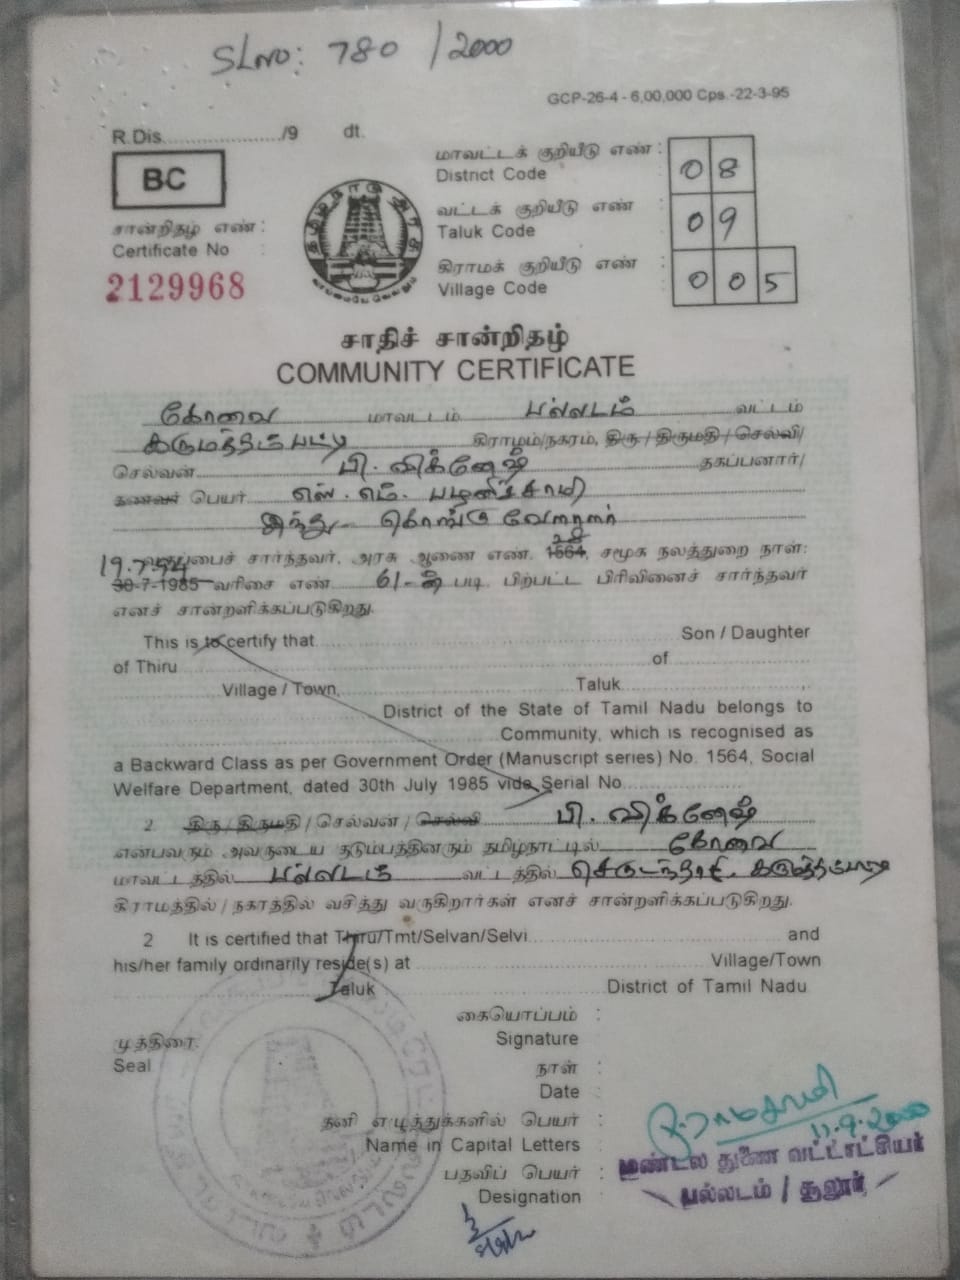 SLNO: 780 /2000
GCP-26-4 - 6,00,000 Cps.-22-3-95
R.Dis..................../9 dt.
BC
மாவட்டக் குறியீடு எண் :
District Code
08
வட்டக் குறியீடு எண் :
Taluk Code
09
சான்றிதழ் எண் :
Certificate No
2129968
கிராமக் குறியீடு எண் :
Village Code
005
தமிழ்நாடு அரசு
வாய்மையே வெல்லும்
சாதிச் சான்றிதழ்
COMMUNITY CERTIFICATE
கோவை மாவட்டம் பல்லடம் வட்டம்
கருமத்தம்பட்டி கிராமம்/நகரம், திரு/திருமதி/செல்வி/
செல்வன் பி. விக்னேஷ் தகப்பனார்/
கணவர் பெயர் எஸ். எம். பழனிச்சாமி
இந்து கொங்கு வேளாளர்
வகுப்பைச் சார்ந்தவர், அரசு ஆணை எண். 1564, 28 சமூக நலத்துறை நாள்:
19.7.94 30-7-1985 வரிசை எண் 61-ன் படி பிற்பட்ட பிரிவினைச் சார்ந்தவர்
எனச் சான்றளிக்கப்படுகிறது.
This is to certify that Son / Daughter
of Thiru of
Village / Town, Taluk
District of the State of Tamil Nadu belongs to
Community, which is recognised as
a Backward Class as per Government Order (Manuscript series) No. 1564, Social
Welfare Department, dated 30th July 1985 vide Serial No.
2 திரு / திருமதி / செல்வன் / செல்வி பி. விக்னேஷ்
என்பவரும் அவருடைய குடும்பத்தினரும் தமிழ்நாட்டில் கோவை
மாவட்டத்தில் பல்லடம் வட்டத்தில்
கிராமத்தில் / நகரத்தில் வசித்து வருகிறார்கள் எனச் சான்றளிக்கப்படுகிறது.
2 It is certified that Thiru/Tmt/Selvan/Selvi and
his/her family ordinarily reside(s) at Village/Town
Taluk District of Tamil Nadu
கையொப்பம் :
Signature
முத்திரை.
Seal
நாள் :
Date
தனி எழுத்துக்களில் பெயர் :
Name in Capital Letters
11.9.2000
பதவிப் பெயர் :
Designation
மண்டல துணை வட்டாட்சியர்
பல்லடம் / சூலூர்